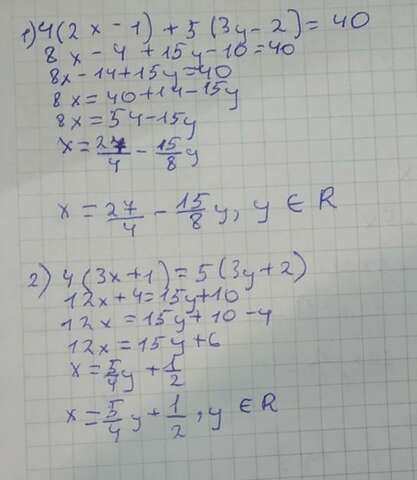 1) 4(2x - 1) + 5(3y - 2) = 40
8x - 4 + 15y - 10 = 40
8x - 14 + 15y = 40
8x = 40 + 14 - 15y
8x = 54 - 15y
x = 27/4 - 15/8 y
x = 27/4 - 15/8 y, y ∈ R
2) 4(3x + 1) = 5(3y + 2)
12x + 4 = 15y + 10
12x = 15y + 10 - 4
12x = 15y + 6
x = 5/4 y + 1/2
x = 5/4 y + 1/2, y ∈ R